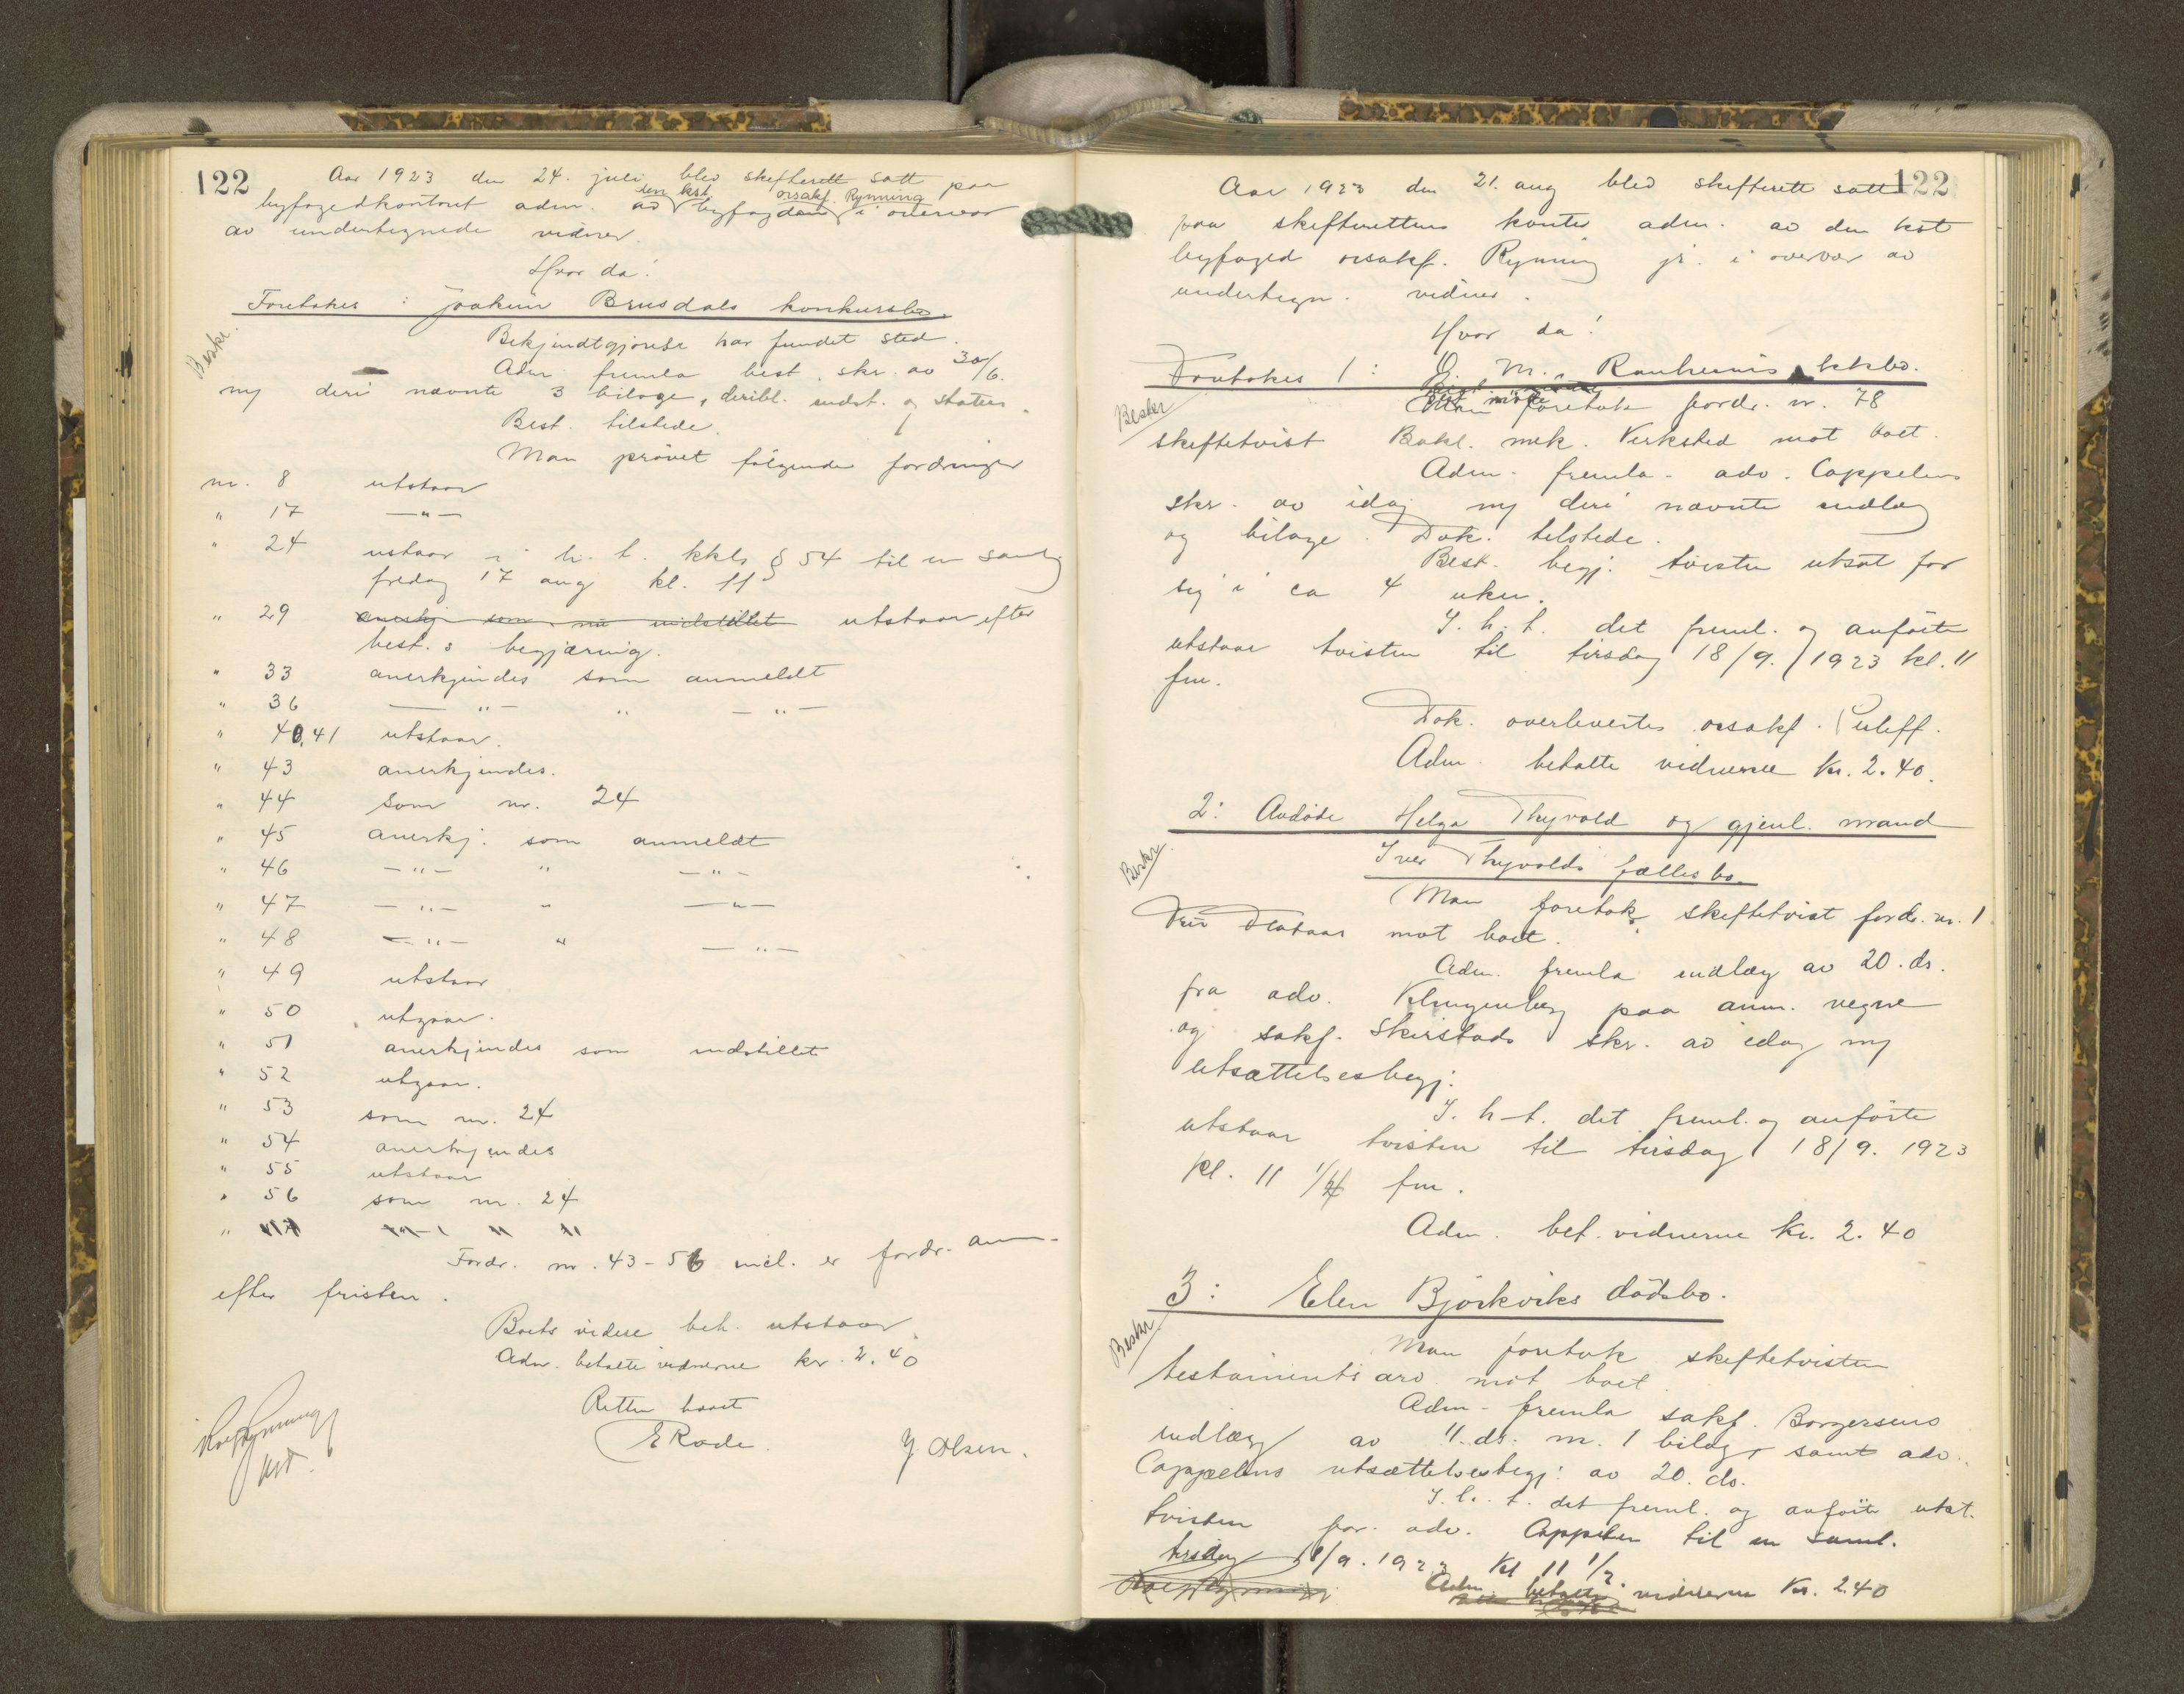 122
Aar 1923 den 24. juli blev skifterett satt paa
byfogedkontoret adm. av den kst byfogden orsakf. Rynning i overvær
av undertegnede vidner.
Hvor da!
Foretokes : Joakim Brusdals konkursbo.
Beskr.
Bekjendtgjørelse har fundet sted.
Adm. fremla best. skr. av 30/6.
mj deri nævnte 3 bilage, deribl. indst. og status.
Best. tilstede.
Man prøvet følgende fordringer
nr. 8 utstaar
" 17 —"—
" 24 ustaar i h. t. kkl. § 54 til en samlig
fredag 17 aug kl. 11
" 29 anerkj som nu indstillet utstaar efter
best.s begjæring.
" 33 anerkjendes som anmeldt
" 36 —"— " —"—
" 40,41 utstaar.
" 43 anerkjendes.
" 44 som nr. 24
" 45 anerkj. som anmeldt
" 46 —"— " —"—
" 47 —"— " —"—
" 48 —"— " —"—
" 49 utstaar
" 50 utgaar.
" 51 anerkjendes som indstillet
" 52 utgaar.
" 53 som nr. 24
" 54 anerkjendes
" 55 utstaar
" 56 som nr. 24
Fordr. nr. 43-56 incl. er fordr. anm.
efter fristen.
Boets videre beh. utstaar.
Adm. betalte vidnerne kr. 2.40
Retten hævet
Rolf Rynning
kst.
E Rode. J Olsen.
122
Aar 1923 den 21. aug blev skifterett satt
paa skifterettens kontor adm. av den kst
byfoged orsakf. Rynning jr. i overvær av
undertegn. vidner.
Hvor da!
Foretokes 1: O. M. Ranheims kkbo.
Beskr
Man foretok fordr. nr. 78
skiftetvist Bakl. mek. Verksted mot boet.
Adm. fremla adv. Cappelens
skr. av idag mj deri nævnte indlæg
og bilage. Dok. tilstede.
Best. begj. tvisten utsat for
sig i ca 4 uker.
I. h. t. det freml. og anførte
utstaar tvisten til tirsdag 18/9. 1923 kl. 11
fm.
Dok. overlevertes orsakf. Culeff.
Adm. betalte vidnerne kr. 2.40.
2: Avdøde Helga Thyvold og gjenl. mand
Beskr.
Iver Thyvolds fællesbo.
Man foretok skiftetvist fordr. nr. 1
mot boet.
Adm. fremla indlæg av 20. ds.
fra adv. Klingenberg paa anm. vegne
og sakf. Skirstads skr. av idag mj
utsættelsesbegj.
I. h. t. det freml. og anførte
utstaar tvisten til tirsdag 18/9. 1923
kl. 11 1/4 fm.
Adm. bet. vidnerne kr. 2.40
3: Elen Bjørkviks dødsbo.
Beskr.
Man foretok skiftetvisten
testamentsarv mot boet.
Adm. fremla sakf. Borgersens
indlæg av 11. ds. m. 1 bilag, samt adv.
Cappelens utsættelsesbegj. av 20. ds.
I. h. t. det freml. og anførte utst.
tvisten for adv. Cappelen til en saml.
tirsdag 18/9. 1923 kl 11 1/2.
Adm. betalte vidnerne kr. 2.40